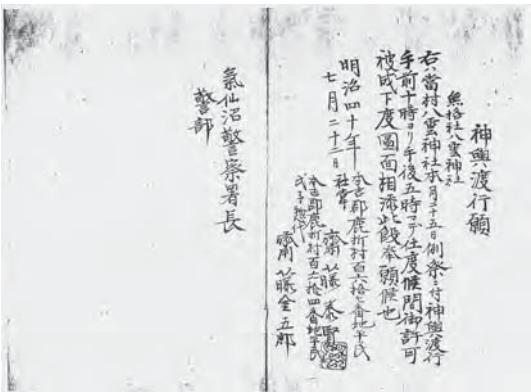 神輿渡行願
無格社八雲神社
右ハ當村八雲神社本月二十五日例祭ニ付神輿渡行
午前十時ヨリ午後五時マテ仕度候間御許可
被成下度圖面相添此段奉願候也
明治四十年
七月二十二日
本吉郡鹿折村百六拾七番地平民
社掌 齋藤泰賢
本吉郡鹿折村百六拾四番地平民
氏子惣代
齋藤金五郎
氣仙沼警察署長
警部